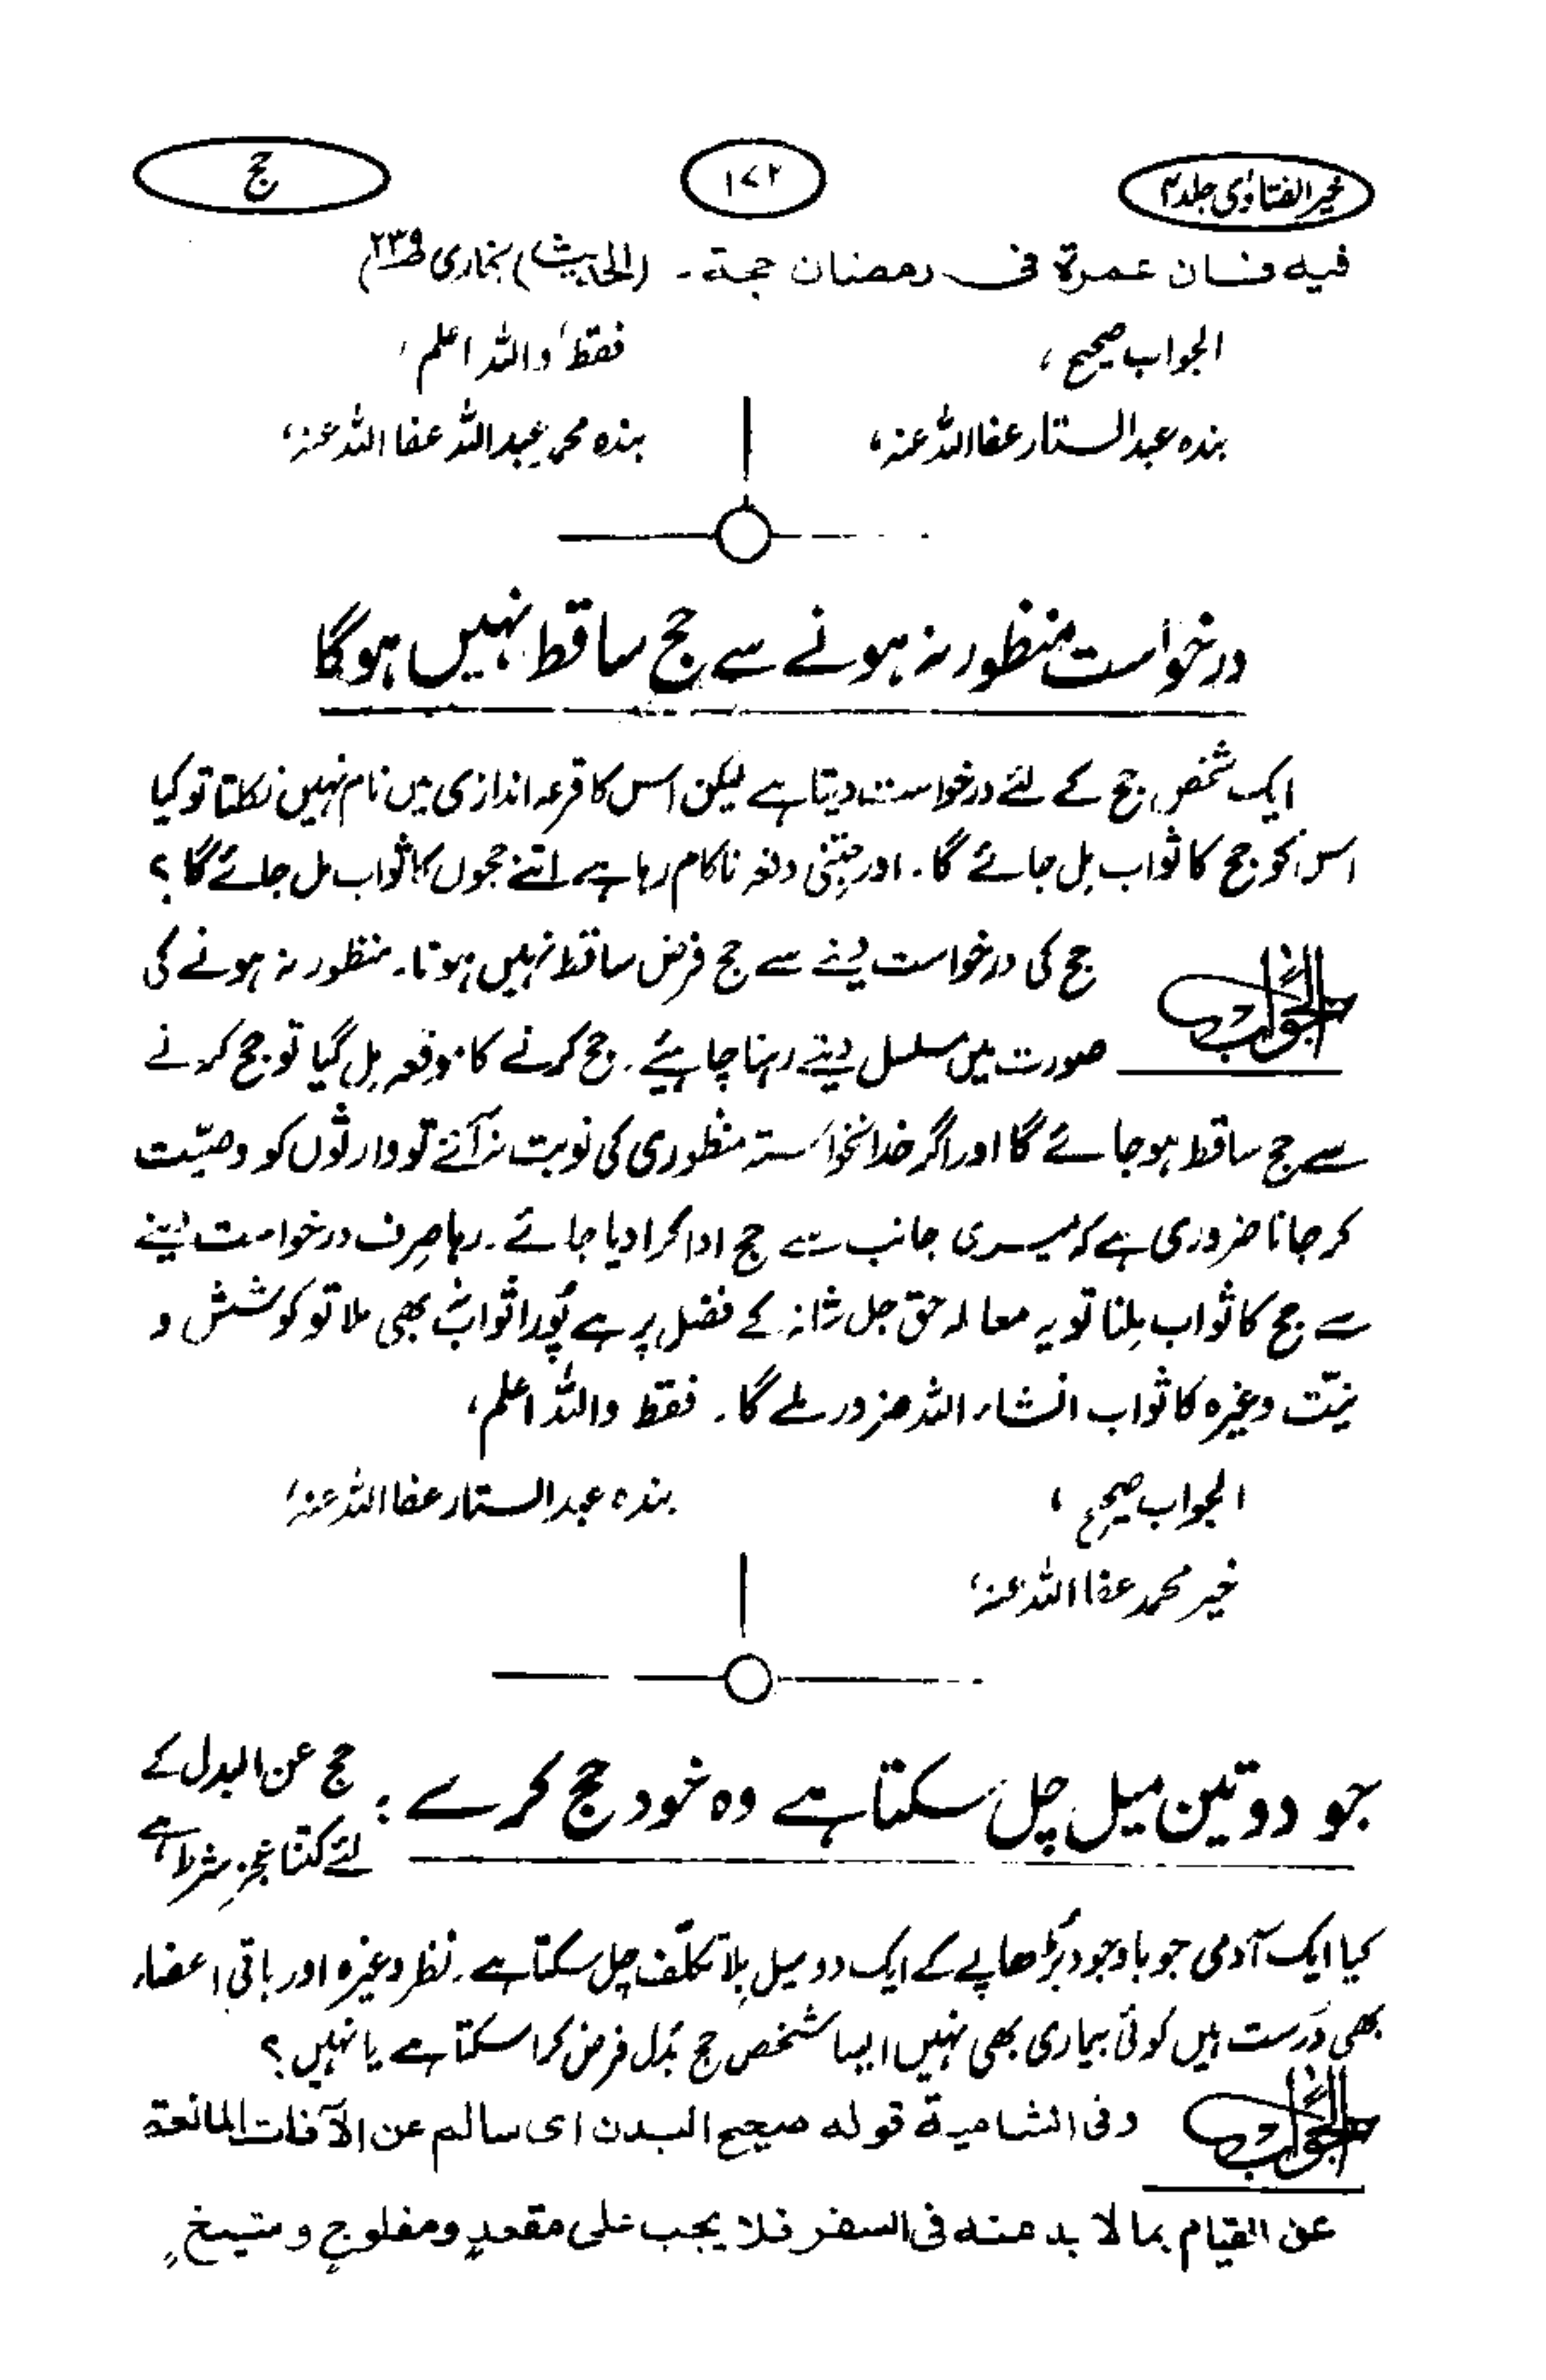 خیر الفتاوٰی جلد ۴
۱۷۲
حج
فیه فان عمرة فی رمضان حجة۔ (الحدیث) بخاری ص۲۳۹
الجواب صحیح، فقط واللہ اعلم،
بندہ عبدالستار عفا اللہ عنہ، بندہ محمد عبداللہ عفا اللہ عنہ،
درخواست منظور نہ ہونے سے حج ساقط نہیں ہوگا
ایک شخص حج کے لئے درخواست دیتا ہے لیکن اس کا قرعہ اندازی میں نام نہیں نکلتا تو کیا
اس کو حج کا ثواب مل جائے گا۔ اور جتنی دفعہ ناکام رہا ہے اتنے حجوں کا ثواب مل جائے گا؟
الجواب حج کی درخواست دینے سے حج فرض ساقط نہیں ہوتا۔ منظور نہ ہونے کی
صورت میں مسلسل دیتے رہنا چاہیئے۔ حج کرنے کا موقعہ مل گیا تو حج کرنے
سے حج ساقط ہو جائے گا اور اگر خدانخواستہ منظوری کی نوبت نہ آئے تو وارثوں کو وصیّت
کر جانا ضروری ہے کہ میری جانب سے حج ادا کرا دیا جائے۔ رہا صِرف درخواست دینے
سے حج کا ثواب مِلنا تو یہ معاملہ حق جل شانہ کے فضل پر ہے پُورا ثواب بھی ملا تو کوشش و
نیّت وغیرہ کا ثواب انشاء اللہ ضرور ملے گا۔ فقط واللہ اعلم،
الجواب صحیح، بندہ عبدالستار عفا اللہ عنہ،
خیر محمد عفا اللہ عنہ،
جو دو تین میل چل سکتا ہے وہ خود حج کرے : حج عن البدل کے
لئے کتنا عجزِ شرط ہے
کیا ایک آدمی جو باوجود بُڑھاپے کے ایک دو میل بِلا تکلّف چل سکتا ہے۔ نظر وغیرہ اور باقی اعضاء
بھی دُرست ہیں کوئی بیماری بھی نہیں ایسا شخص حج بَدل فرض کرا سکتا ہے یا نہیں؟
الجواب وفی الشامیة قوله صحیح البدن ای سالم عن الآفات المانعة
عن القیام بما لا بد منه فی السفر فلا یجب علی مقعدٍ ومفلوجٍ وشیخٍ